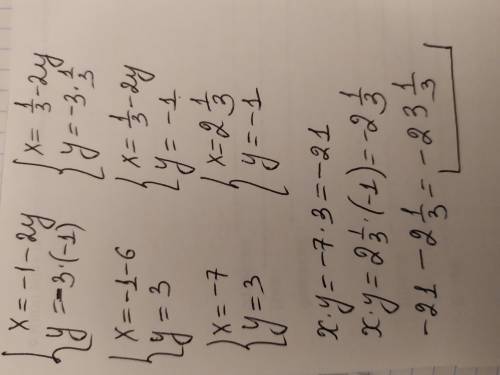 { x = -1 - 2y
y = -3 · (-1)
{ x = 1/3 - 2y
y = -3 · 1/3
{ x = -1 - 6
y = 3
{ x = 1/3 - 2y
y = -1
{ x = -7
y = 3
{ x = 2 1/3
y = -1
x · y = -7 · 3 = -21
x · y = 2 1/3 · (-1) = -2 1/3
-21 - 2 1/3 = -23 1/3